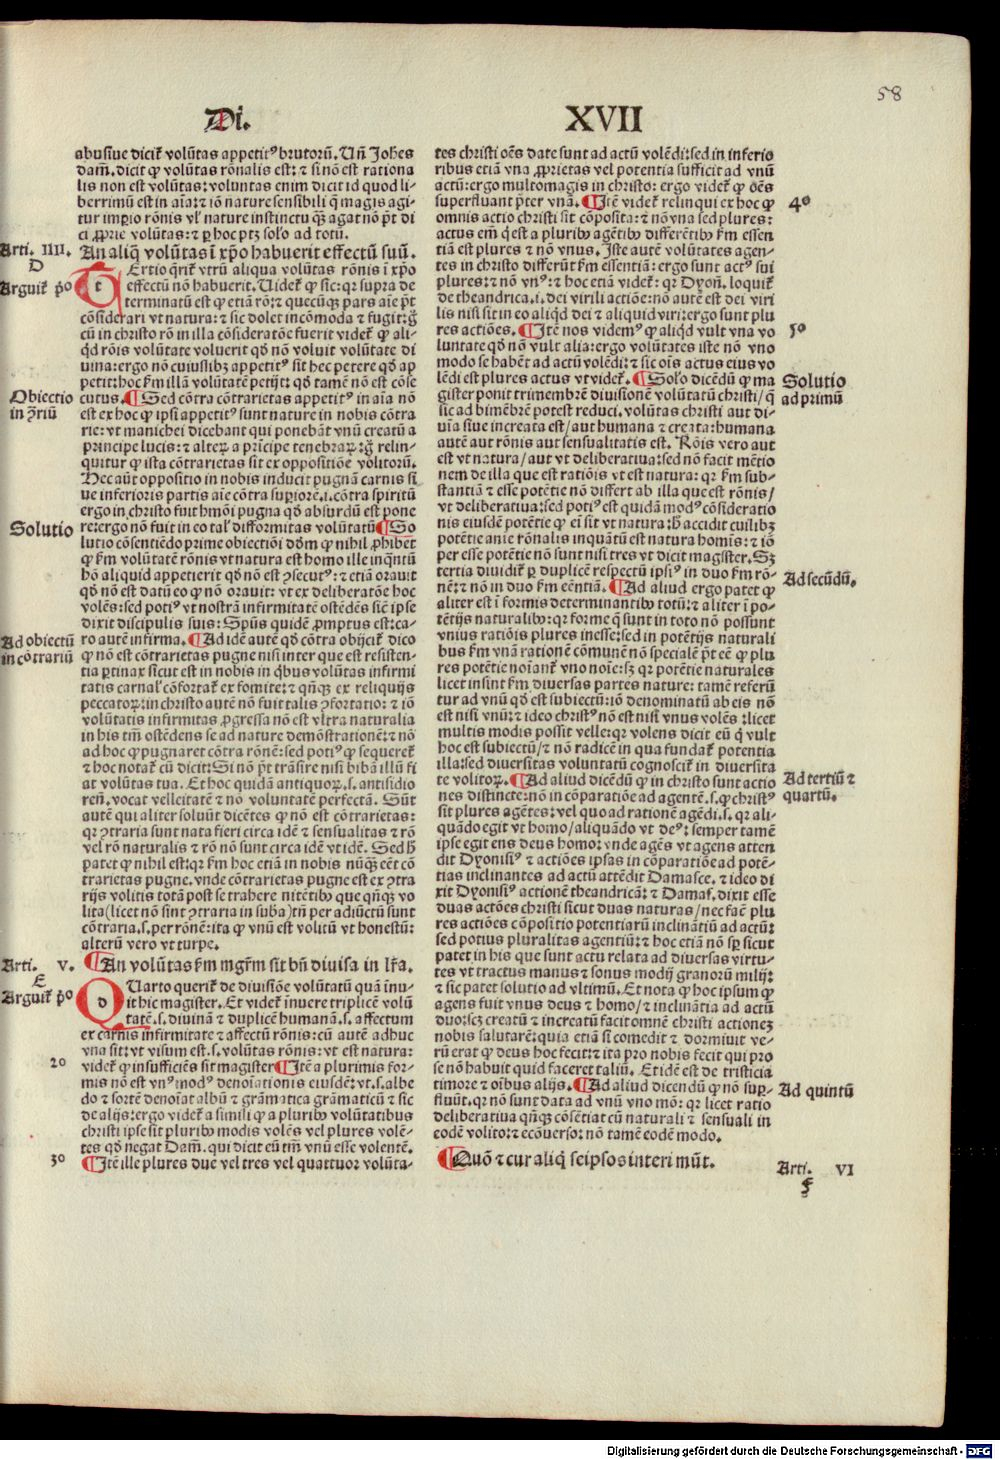 58
Di. XVII
abusiue dicit᷑ volūtas appetitꝰ brutorū. Vn̄ Johēs
dam̄. dicit ꝙ volūtas rōnalis est: ⁊ si nō est rationa
lis non est volūtas: voluntas enim dicit id quod li-
berrimū est in aīa: ⁊ iō nature sensibili q̄ magis agi-
tur imꝑio rōnis vl̓ nature instinctu qꝫ agat nō pt̄ di
ci ꝓprie volūtas: ⁊ ꝑ hoc ptꝫ solo ad totū.
Arti. IIII.
D
An aliq̄ volūtas ī xp̄o habuerit effectū suū.
Arguit᷑ pº
Tertio q̄rit᷑ vtrū aliqua volūtas rōnis ī xp̄o
effectū nō habuerit. Videt᷑ ꝙ sic: qꝛ supra de
terminatū est ꝙ etiā rō: ⁊ quecūqꝫ pars aīe pt̄
cōsiderari vt natura: ⁊ sic dolet incōmoda ⁊ fugit: g̊
cū in christo rō in illa cōsideratōe fuerit videt᷑ ꝙ ali-
qd̄ rōis volūtate voluerit qd̄ nō voluit volūtate di
uina: ergo nō cuiuslibꝫ appetitꝰ sit hec petere qd̄ ap
petit: hoc ẜm illā volūtatē petijt: qd̄ tamē nō est cōse
Obiectio
in ꝯriū
cutus. ¶ Sed cōtra cōtrarietas appetitꝰ in aīa nō
est ex hoc ꝙ ipsi appetitꝰ sunt nature in nobis cōtra
rie: vt manichei dicebant qui ponebāt vnū creatū a
principe lucis: ⁊ alteꝝ a prīcipe tenebraꝝ: g̊ relin-
quitur ꝙ ista cōtrarietas sit ex oppositiōe volitorū.
Hec aūt oppositio in nobis inducit pugnā carnis si
ue inferioris partis aīe cōtra suꝑiorē .i. cōtra spiritū
ergo in christo fuit hmōi pugna qd̄ absurdū est pone
Solutio
re: ergo nō fuit in eo tal̓ difformitas volūtatū ¶ So
lutio cōsentiēdo prime obiectiōi dd̄m ꝙ nihil ꝓhibet
ꝙ ẜm volūtatē rōnis vt natura est homo ille inqntū
hō aliquid appetierit qd̄ nō est ꝯsecutꝰ: ⁊ etiā orauit
qd̄ nō est datū eo ꝙ nō orauit: vt ex deliberatōe hoc
volēs: sed potiꝰ vt nostrā infirmitatē ostēdēs sic̄ ipse
dixit discipulis suis: Spūs quidē ꝓmptus est: ca-
Ad obiectū
in cōtrariū
ro autē infirma. ¶ Ad idē autē qd̄ cōtra obijcit᷑ dico
ꝙ nō est cōtrarietas pugne nisi inter que est resisten-
tia ꝑtinax sicut est in nobis in qbus volūtas infirmi
tatis carnal̓ cōfortat᷑ ex fomite: ⁊ qn̄qꝫ ex reliquijs
peccatoꝝ: in christo autē nō fuit talis ꝯfortatio: ⁊ iō
volūtatis infirmitas ꝓgressa nō est vltra naturalia
in his tm̄ ostēdens se ad nature demōstrationē: ⁊ nō
ad hoc ꝙ pugnaret cōtra rōnē: sed potiꝰ ꝙ sequeret᷑
⁊ hoc notat᷑ cū dicit: Si nō pt̄ trāsire nisi bibā illū fi
at volūtas tua. Et hoc quidā antiquoꝝ .s. antisidio
ren̄. vocat velleitatē ⁊ nō voluntatē perfectā. Sūt
autē qui aliter soluūt dicētes ꝙ nō est cōtrarietas:
qꝛ ꝯtraria sunt nata fieri circa idē ⁊ sensualitas ⁊ rō
vel rō naturalis ⁊ rō nō sunt circa idē vt idē. Sed h̄
patet ꝙ nihil est: qꝛ ẜm hoc etiā in nobis nūqꝫ eēt cō
trarietas pugne. vnde cōtrarietas pugne est ex ꝯtra
rijs volitis totā post se trahere nitētibꝰ que qn̄qꝫ vo
lita (licet nō sint ꝯtraria in suba) tn̄ per adiūctū sunt
cōtraria .s. per rōnē: ita ꝙ vnū est volitū vt honestū:
alterū vero vt turpe.
Arti. V.
E
¶ An volūtas ẜm mgr̄m sit bn̄ diuisa in lr̄a.
Arguit᷑ pº
Quarto querit᷑ de diuisiōe volūtatū quā inu-
it hic magister. Et videt᷑ īnuere triplicē volū
tatē .s. diuinā ⁊ duplicē humanā .s. affectum
ex carnis infirmitate ⁊ affectū rōnis: cū autē adhuc
vna sit: vt visum est .s. volūtas rōnis: vt est natura:
2º
videt᷑ ꝙ insufficiēs sit magister ¶ Itē a plurimis for-
mis nō est vnꝰ modꝰ denoīationis eiusdē: vt .s. albe
do ⁊ sortē denoīat albū ⁊ grāmatica grāmaticū ⁊ sic
de alijs: ergo videt᷑ a simili ꝙ a pluribꝰ volūtatibus
christi ipse sit pluribꝰ modis volēs vel plures volē-
tes qd̄ negat Dam̄. qui dicit eū tm̄ vnū esse volentē.
3º
¶ Itē ille plures due vel tres vel quattuor volūta-
tes christi oēs date sunt ad actū volēdi: sed in inferio
ribus etiā vna ꝓprietas vel potentia sufficit ad vnū
actū: ergo multomagis in christo: ergo videt᷑ ꝙ oēs
4º
superfluant p̄ter vnā. ¶ Itē videt᷑ relinqui ex hoc ꝙ
omnis actio christi sit cōposita: ⁊ nō vna sed plures:
actus em̄ q̄ est a pluribꝰ agētibꝰ differētibꝰ ẜm essen
tiā est plures ⁊ nō vnus. Iste autē volūtates agen-
tes in christo differūt ẜm essentiā: ergo sunt actꝰ sui
plures: ⁊ nō vnꝰ: ⁊ hoc etiā videt᷑: qꝛ Dyon̄. loquit᷑
de theandrica .i. dei virili actiōe: nō autē est dei viri
lis nisi sit in eo aliqd dei ⁊ aliquid viri: ergo sunt plu
5º
res actiōes. ¶ Itē nos videmꝰ ꝙ aliqd vult vna vo
luntate qd̄ nō vult alia: ergo volūtates iste nō vno
modo se habēt ad actū volēdi: ⁊ sic oīs actus eius vo
Solutio
ad primū
lēdi est plures actus vt videt᷑. ¶ Solo dicēdū ꝙ ma
gister ponit trimembrē diuisionē volūtatū christi / q̄
sic ad bimēbrē potest reduci. volūtas christi aut di-
uīa siue increata est / aut humana ⁊ creata: humana
autē aut rōnis aut sensualitatis est. Rōis vero aut
est vt natura / aut vt deliberatiua: sed nō facit mētio
nem de illa que est ratiōis vt est natura: qꝛ ẜm sub-
stantiā ⁊ esse potētie nō differt ab illa que est rōnis /
vt deliberatiua: sed potiꝰ est quidā modꝰ cōsideratio
nis eiusdē potētie ꝙ ei sit vt natura: h̄ accidit cuilibꝫ
potētie anīe rōnalis inquātū est natura homis: ⁊ iō
per esse potētie nō sunt nisi tres vt dicit magister. Sꝫ
tertia diuidit᷑ ꝑ duplicē respectū ipsiꝰ in duo ẜm rō-
Ad secūdū.
nē: ⁊ nō in duo ẜm eēntiā. ¶ Ad aliud ergo patet ꝙ
aliter est ī formis determinantibꝰ totū: ⁊ aliter ī po-
tētijs naturalibꝰ: qꝛ forme q̄ sunt in toto nō possunt
vnius ratiōis plures inesse: sed in potētijs naturali
bus ẜm vnā rationē cōmunē nō specialē pt̄ eē ꝙ plu
res potētie noīant᷑ vno noīe: sꝫ qꝛ potētie naturales
licet insint ẜm diuersas partes nature: tamē referū
tur ad vnū qd̄ est subiectū: iō denominatū ab eis nō
est nisi vnū: ⁊ ideo christꝰ nō est nisi vnus volēs: licet
multis modis possit velle: qꝛ volens dicit eū q̄ vult
hoc est subiectū / ⁊ nō radicē in qua fundat᷑ potentia
illa: sed diuersitas voluntatū cognoscit᷑ in diuersita
Ad tertiū ⁊
quartū.
te volitoꝝ. ¶ Ad aliud dicēdū ꝙ in christo sunt actio
nes distincte: nō in cōparatiōe ad agentē .s. ꝙ christꝰ
sit plures agētes: vel quo ad rationē agēdi .s. qꝛ ali-
quādo egit vt homo / aliquādo vt deꝰ: semper tamē
ipse egit ens deus homo: vnde agēs vt agens atten
dit Dyonisiꝰ ⁊ actiōes ipsas in cōparatiōe ad potē-
tias inclinantes ad actū attēdit Damasce. ⁊ ideo di
xit Dyonisiꝰ actionē theandricā: ⁊ Damas. dixit esse
duas actōes christi sicut duas naturas / nec faēt plu
res actiōes cōpositio potentiarū inclinātiū ad actū:
sed potius pluralitas agentiū: ⁊ hoc etiā nō sp̄ sicut
patet in his que sunt actu relata ad diuersas virtu-
tes vt tractus manus ⁊ sonus modij granorū milij:
⁊ sic patet solutio ad vltimū. Et nota ꝙ hoc ipsum ꝙ
agens fuit vnus deus ⁊ homo / ⁊ inclinātia ad actū
duo: scꝫ creatū ⁊ increatū facit omnē christi actioneꝫ
nobis salutarē: quia etiā si comedit ⁊ dormiuit ve-
rū erat ꝙ deus hoc fecit: ⁊ ita pro nobis fecit qui pro
se nō habuit quid faceret taliū. Et idē est de tristicia
Ad quintū
timore ⁊ oībus alijs. ¶ Ad aliud dicendū ꝙ nō suꝑ-
fluūt. qꝛ nō sunt data ad vnū vno mō: qꝛ licet ratio
deliberatiua qn̄qꝫ cōsētiat cū naturali ⁊ sensuali in
eodē volito: ⁊ ecōuerso: nō tamē eodē modo.
Arti. VI
F
¶ Quō ⁊ cur aliq̄ seipsos interimūt.
Digitalisierung gefördert durch die Deutsche Forschungsgemeinschaft - DFG